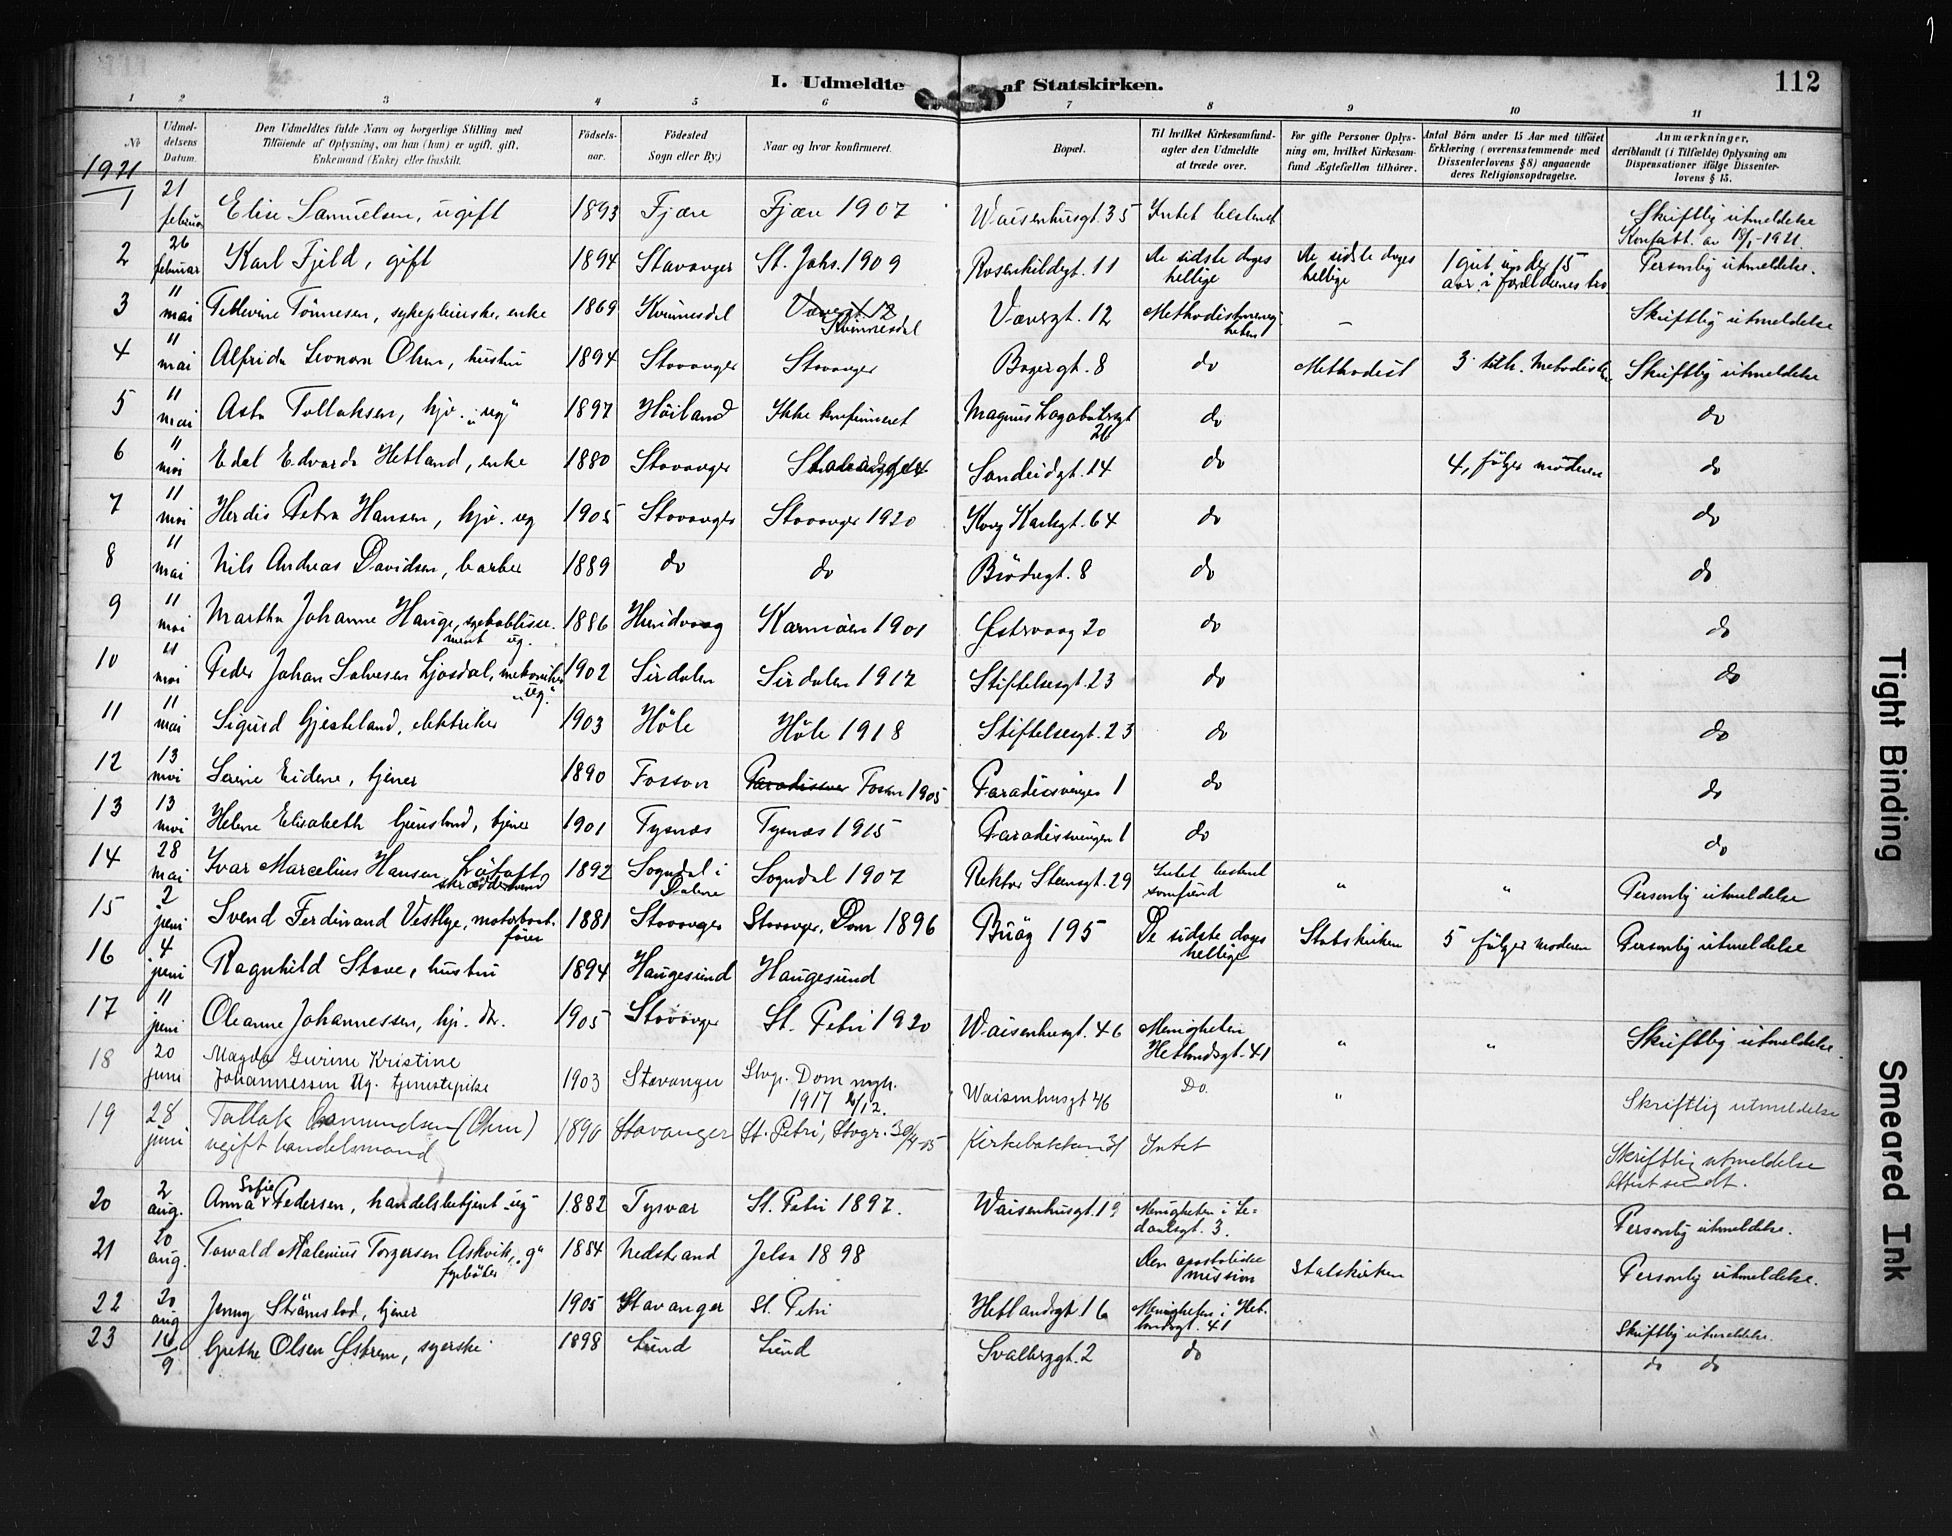 I. Udmeldte af Statskirken. 112
1 2 3 4 5 6 7 8 9 10 11
No Udmeldelsens Datum. Den Udmeldtes fulde Navn og borgerlige Stilling med Tilføiende af Oplysning, om han (hun) er ugift, gift, Enkemand (Enke) eller fraskilt. Fødselsaar. Fødested Sogn eller By.) Naar og hvor konfirmeret. Bopæl. Til hvilket Kirkesamfund agter den Udmeldte at træde over. For gifte Personer Oplysning om, hvilket Kirkesamfund Ægtefællen tilhører. Antal Børn under 15 Aar med tilføiet Erklæring (overensstemmende med Dissenterlovens § 8) angaaende deres Religionsopdragelse. Anmærkninger, deriblandt (i Tilfælde) Oplysning om Dispensationer ifølge Dissenterlovens § 15.
1921
1 21 februar Elise Samuelsen, ugift 1893 Fjære Fjære 1907 Waisenhusgt. 35 Intet bestemt Skriftlig utmeldelse Konfatt. av 18/1-1921.
2 26 februar Karl Fjeld, gift 1894 Stavanger St. Johs. 1909 Rosenkildegt. 11 De sidste dages hellige De sidste dages hellige 1 gut under 15 aar i forældrenes tro Personlig utmeldelse.
3 11 mai Tellevine Tönnesen, sykepleierske, enke 1869 Kvinnesdal Kvinnesdal Vævergt. 12 Methodistmenigheten — Skriftlig utmeldelse
4 11 mai Alfrida Leonora Olsen, hustru 1894 Stavanger Stavanger Bogergt. 8 do Methodist 3 tilh. metodisten Skriftlig utmeldelse
5 11 mai Asta Tollaksen, hjv. "ug" 1897 Höiland Ikke konfirmeret Magnus Lagabøtersgt 26 do do
6 11 mai Edel Edvarda Hetland, enke 1880 Stavanger Stavanger Sandeidgt. 14 do 4, følger moderen do
7 11 mai Herdis Petra Hansen, hjv. ug 1905 Stavanger Stavanger 1920 Kong Karlsgt. 64 do do
8 11 mai Nils Andreas Davidsen, barber 1889 do do Brödregt. 8 do do
9 11 mai Martha Johanne Hauge, syetablissement ug. 1886 Hvidvaag Karmöen 1901 Østervaag 20 do do
10 11 mai Peder Johan Salvesen Ljosdal, mekaniker "ug." 1902 Sirdalen Sirdalen 1917 Stiftelsesgt. 23 do do
11 11 mai Sigurd Gjesteland, elektriker 1903 Höle Höle 1918 Stiftelsesgt. 23 do do
12 13 mai Serine Eidene, tjener 1890 Fosson Fosson 1905 Paradisveien 1 do do
13 13 mai Helene Elisabeth Gjerstand, tjener 1901 Tysnæs Tysnæs 1915 Paradisveien 1 do do
14 28 mai Ivar Marcelius Hansen, skræddersvend 1892 Sogndal i Dalene Sogndal 1907 Rektor Steensgt. 29 Intet bestemt samfund " " Personlig utmeldelse
15 2 juni Svend Ferdinand Vestlye, motorbaatfører 1881 Stavanger Stavanger, Dom 1896 Buöy 195 De sidste dages hellige Statskirken 5 følger moderen Personlig utmeldelse
16 4 juni Ragnhild Stave, hustru 1894 Haugesund Haugesund
17 11 juni Oleanne Johannessen, hj. dtr. 1905 Stavanger St. Petri 1920 Waisenhusgt. 46 Menigheten Hetlandsgt. 41 " " Skriftlig utmeldelse.
18 20 juni Magda Gurine Kristine Johannessen Ug. tjenestepike 1903 Stavanger Stvgr. Dom mgh. 1917 2/12. Waisenhusgt 46 Do. " Skriftlig utmeldelse
19 28 juni Tollak Asmundsen (Ohm) ugift handelsmand 1890 Stavanger St. Petri, Stvgr. 30/4-05 Kirkebakken 31 Intet Skriftlig utmeldelse Attest sendt.
20 2 aug. Anna Sofie Pedersen, handelsbetjent ug 1882 Tysvær St. Petri 1897. Waisenhusgt. 19 Menigheten i Ledaalsgt. 3. Personlig utmeldelse.
21 20 aug. Torvald Malenius Torgersen Askvik, "g" fyrbøter 1884 Nedstrand Jelsa 1898 Den apostoliske mission Statskirken Personlig utmeldelse.
22 20 aug Jenny Strömstad, tjener 1905 Stavanger St. Petri Hetlandsgt 16 Menigheten i Hetlandsgt. 41 Skriftlig utmeldelse.
23 16/9 Grethe Olsen Østrem, syerske 1898 Lund Lund Svalbergt. 2 do do do
Tight Binding
Smeared Ink